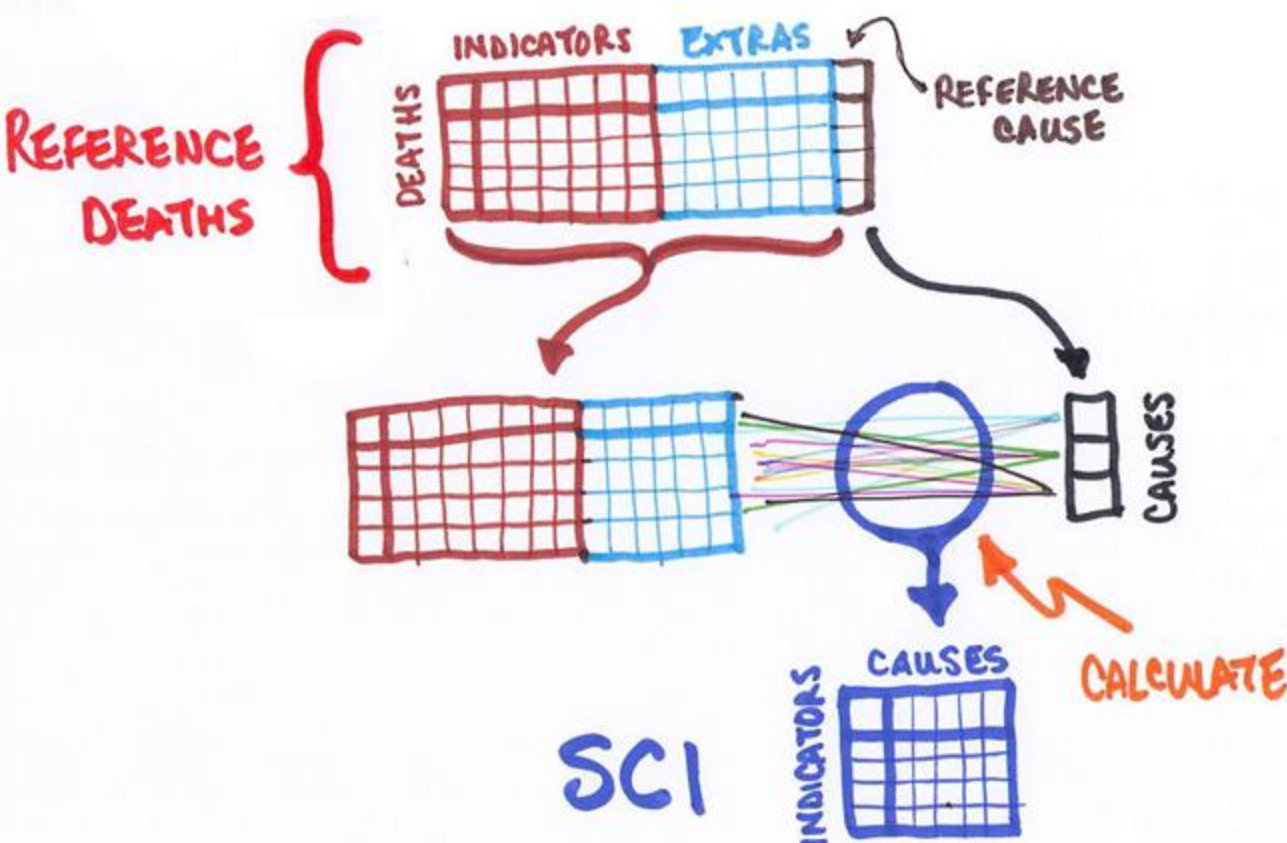 REFERENCE
DEATHS
DEATHS
INDICATORS
EXTRAS
REFERENCE
CAUSE
CAUSES
CALCULATE
SCI
CAUSES
INDICATORS